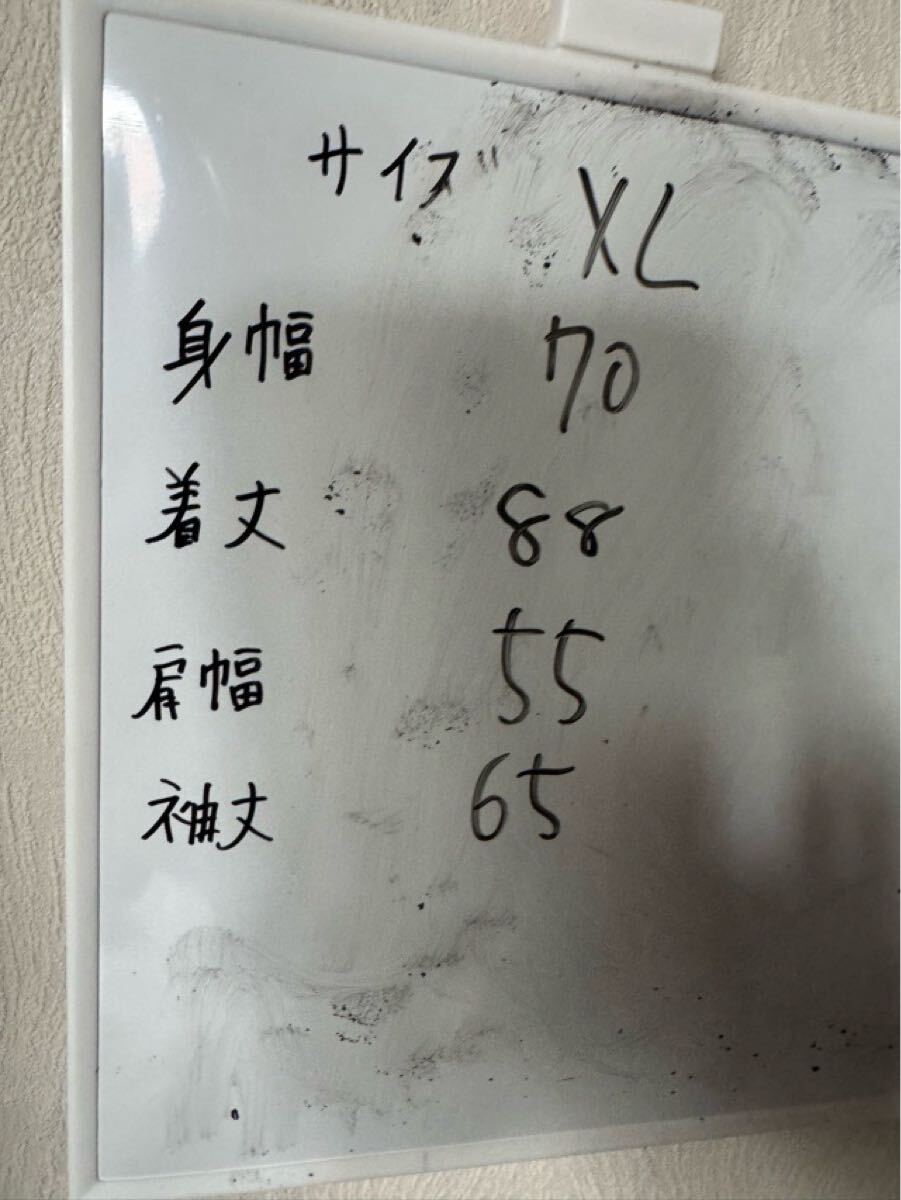 サイズ XL
身幅 70
着丈 88
肩幅 55
袖丈 65